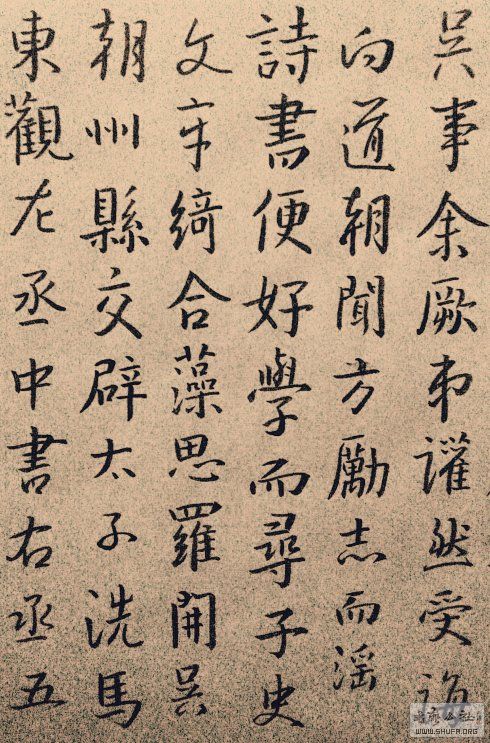 吳事余厥讙然受
向道朝聞方勵志而淫
詩書便好學而尋子史
文綺合藻思羅開吳
朝州縣交辟太子洗馬
東觀左丞中書右丞五
WWW.SHUFA.ORG